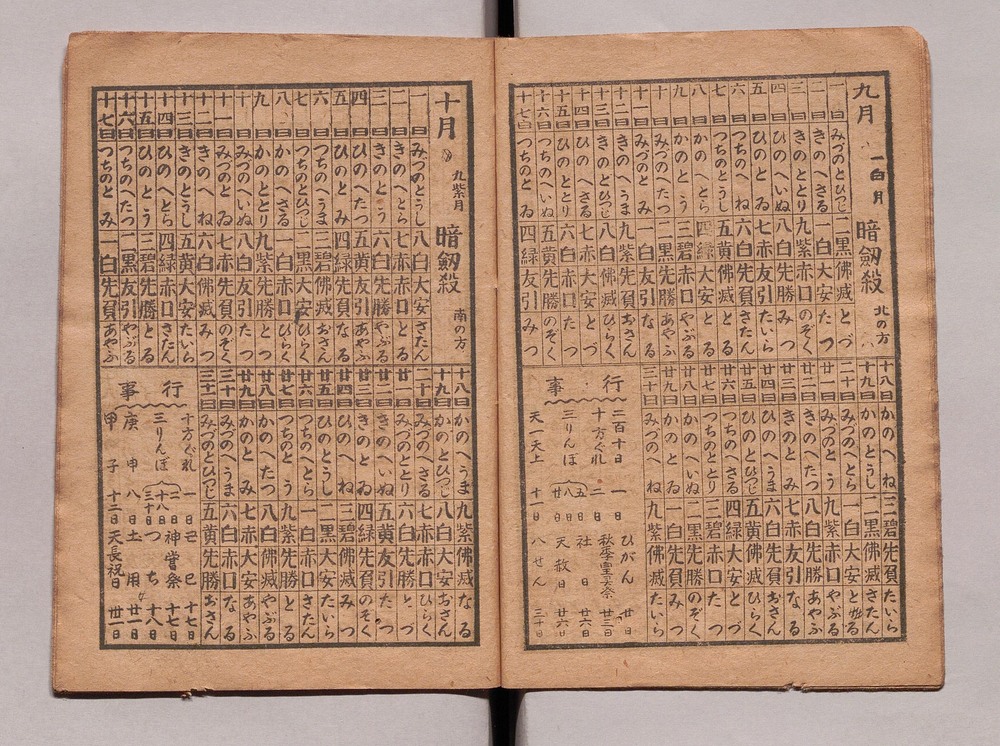 九月 一白月 暗劔殺 北の方
一日 みづのとひつじ 二黒 佛滅 とづ
二日 きのへさる 一白 大安 たつ
三日 きのととり 九紫 赤口 のぞく
四日 ひのへいぬ 八白 先勝 みつ
五日 ひのとゐ 七赤 友引 たいら
六日 つちのへね 六白 先負 さたん
七日 つちのとうし 五黄 佛滅 とる
八日 かのへとら 四緑 大安 とる
九日 かのとう 三碧 赤口 やぶる
十日 みづのへたつ 二黒 先勝 あやふ
十一日 みづのとみ 一白 友引 なる
十二日 きのへうま 九紫 先負 おさん
十三日 きのとひつじ 八白 佛滅 ひらく
十四日 ひのへさる 七赤 大安 とづ
十五日 ひのととり 六白 赤口 たつ
十六日 つちのへいぬ 五黄 先勝 のぞく
十七日 つちのとゐ 四緑 友引 みつ
十八日 かのへね 三碧 先負 たいら
十九日 かのとうし 二黒 佛滅 さたん
二十日 みづのへとら 一白 大安 とる
廿一日 みづのとう 九紫 赤口 やぶる
廿二日 きのへたつ 八白 先勝 あやふ
廿三日 きのとみ 七赤 友引 なる
廿四日 ひのへうま 六白 先負 おさん
廿五日 ひのとひつじ 五黄 佛滅 ひらく
廿六日 つちのへさる 四緑 大安 とづ
廿七日 つちのととり 三碧 赤口 たつ
廿八日 かのへいぬ 二黒 先勝 のぞく
廿九日 かのとゐ 一白 先負 みつ
三十日 みづのへね 九紫 佛滅 たいら
行事
二百十日 一日 ひがん 廿日
十方ぐれ 二日 秋季皇霊祭 廿三日
三りんぼ 五日 十八日 廿日 社日 廿六日
天赦日 廿六日
天一天上 十一日 八せん 三十日
十月 九紫月 暗劔殺 南の方
一日 みづのとうし 八白 大安 さたん
二日 きのへとら 七赤 赤口 とる
三日 きのとう 六白 先勝 やぶる
四日 ひのへたつ 五黄 友引 あやふ
五日 ひのとみ 四緑 先負 なる
六日 つちのへうま 三碧 佛滅 おさん
七日 つちのとひつじ 二黒 大安 ひらく
八日 かのへさる 一白 赤口 ひらく
九日 かのととり 九紫 先勝 とづ
十日 みづのへいぬ 八白 友引 たつ
十一日 みづのとゐ 七赤 先負 のぞく
十二日 きのへね 六白 佛滅 みつ
十三日 きのとうし 五黄 大安 たいら
十四日 ひのへとら 四緑 赤口 さたん
十五日 ひのとう 三碧 先勝 とる
十六日 つちのへたつ 二黒 友引 やぶる
十七日 つちのとみ 一白 先負 あやふ
十八日 かのへうま 九紫 佛滅 なる
十九日 かのとひつじ 八白 大安 おさん
二十日 みづのへさる 七赤 赤口 ひらく
廿一日 みづのととり 六白 先勝 とづ
廿二日 きのへいぬ 五黄 友引 たつ
廿三日 きのとゐ 四緑 先負 のぞく
廿四日 ひのへね 三碧 佛滅 みつ
廿五日 ひのとうし 二黒 大安 たいら
廿六日 つちのへとら 一白 赤口 さたん
廿七日 つちのとう 九紫 先勝 とる
廿八日 かのへたつ 八白 佛滅 やぶる
廿九日 かのとみ 七赤 大安 あやふ
三十日 みづのへうま 六白 赤口 なる
三十一日 みづのとひつじ 五黄 先勝 おさん
行事
十方ぐれ 一日 己巳 十七日
三りんぼ 二日 十八日 三十日 神嘗祭 十七日
つち 十八日
庚申 八日 土用 廿一日
甲子 十二日 天長祝日 廿一日